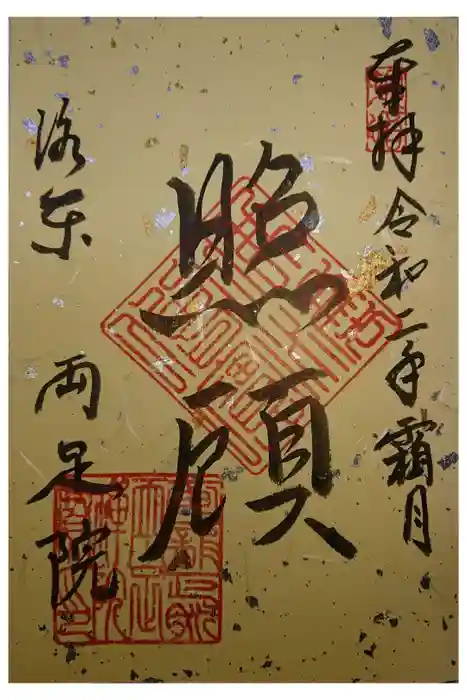 奉拝 令和二年霜月
照顧
洛东 両足院